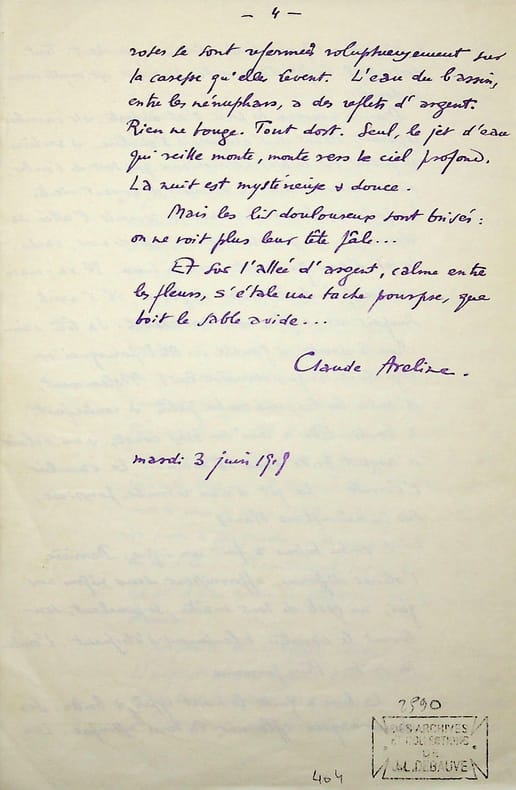 — 4 —
roses se sont refermées voluptueusement sur
la caresse qu'elles rêvent. L'eau du bassin,
entre les nénuphars, a des reflets d'argent.
Rien ne bouge. Tout dort. Seul, le jet d'eau
qui veille monte, monte vers le ciel profond.
La nuit est mystérieuse & douce.
Mais les lis douloureux sont brisés :
on ne voit plus leur tête pâle...
Et sur l'allée d'argent, calme entre
les fleurs, s'étale une tache pourpre, que
boit le sable avide...
Claude Aveline.
mardi 3 juin 1919
2990
DES ARCHIVES
ET COLLECTIONS
DE
J.L. DEBAUVE
404